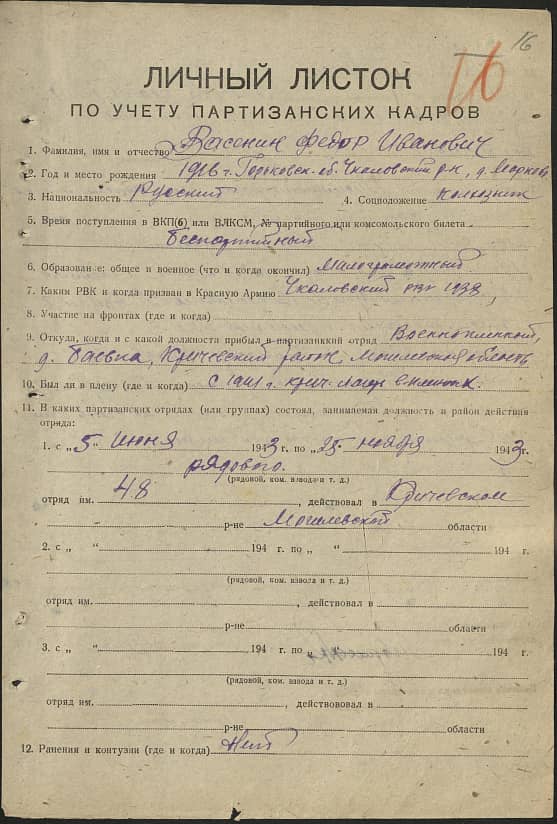 16
16
ЛИЧНЫЙ ЛИСТОК
ПО УЧЕТУ ПАРТИЗАНСКИХ КАДРОВ
1. Фамилия, имя и отчество Васонин Федор Иванович
2. Год и место рождения 1916 г. Горьковск. об. Чкаловский р-н, д.
3. Национальность Русский 4. Соцположение колхозник
5. Время поступления в ВКП(б) или ВЛКСМ, № партийного или комсомольского билета
Беспартийный
6. Образование: общее и военное (что и когда окончил) Малограмотный
7. Каким РВК и когда призван в Красную Армию Чкаловский РВК 1938
8. Участие на фронтах (где и когда)
9. Откуда, когда и с какой должности прибыл в партизанский отряд Военнопленный,
д. Баевка, Кричевский район, Могилевская область
10. Был ли в плену (где и когда) с 1941 г.
11. В каких партизанских отрядах (или группах) состоял, занимаемая должность и район действия
отряда:
1. с „5 июня 1943 г. по „25 ноября 1943 г.
рядового.
(рядовой, ком. взвода и т. д.)
отряд им. 48, действовал в Кричевском
р-не Могилевской области
2. с „ “ 194 г. по „ “ 194 г.
(рядовой, ком. взвода и т. д.)
отряд им. , действовал в
р-не области
3. с „ “ 194 г. по „ “ 194 г.
(рядовой, ком. взвода и т. д.)
отряд им. , действовал в
р-не области
12. Ранения и контузии (где и когда) Нет